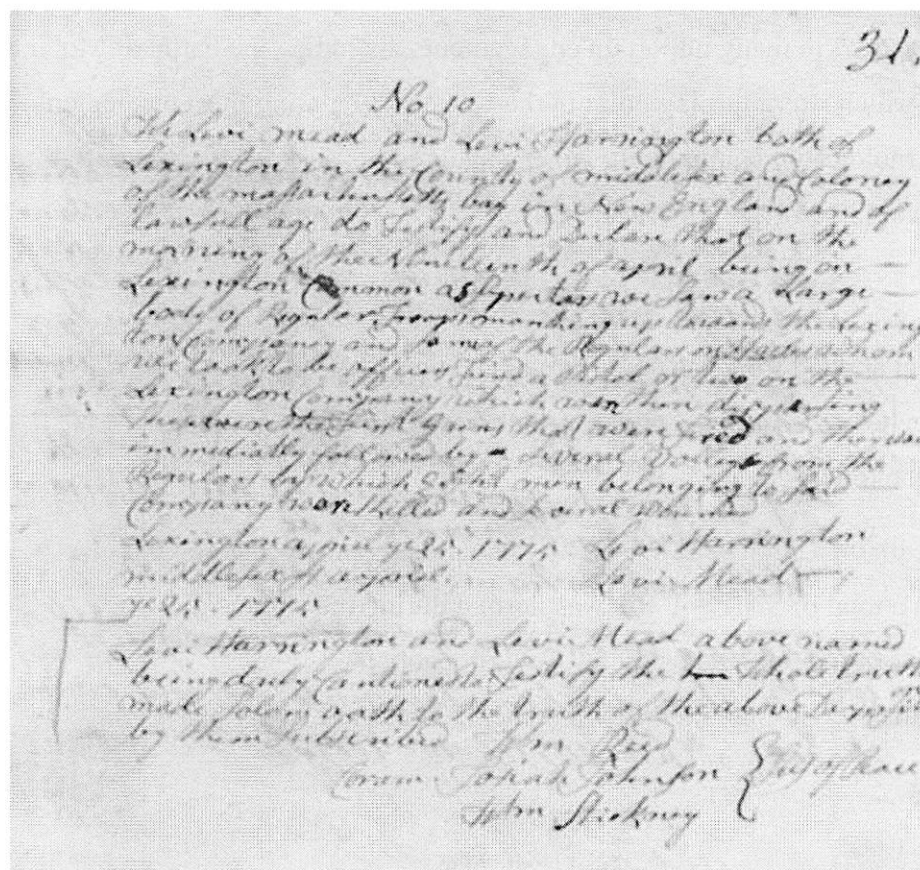 31.
No 10
We Levi Mead and Levi Harrington both of
Lexington in the County of middlesex and Coloney
of the massachusetts bay in New England and of
lawfull age do Testify and Declare that on the
morning of the Nineteenth of april being on
Lexington Common as Spectators we Saw a Large
body of Regular Troops marching up towards the Lexing
ton Company and some of the Regulars on Horses whom
we took to be officers fired a Pistol or two on the
Lexington Company which were then dispersing
these were the first Guns that were fired and they were
immediatly followed by several Volleys from the
Regulars by which Eight men belonging to said
Company were killed and several wounded
Lexington april ye 25 1775 Levi Harrington
middlesex ss april Levi Mead
ye 25 1775
Levi Harrington and Levi Mead above named
being duly Cautioned to Testify the whole truth
made solemn oath to the truth of the above Deposition
by them subscribed Wm Reed
Coram Josiah Johnson Jus of Peace
Wm Stickney